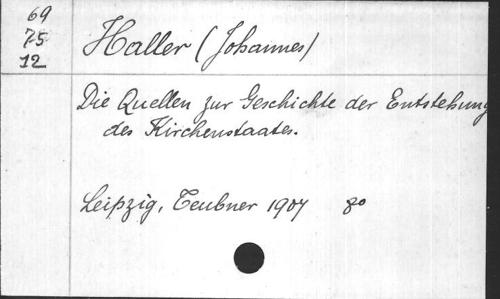 69
75
12
Haller (Johannes)
Die Quellen zur Geschichte der Entstehung
des Kirchenstaates.
Leipzig, Teubner 1907 8o